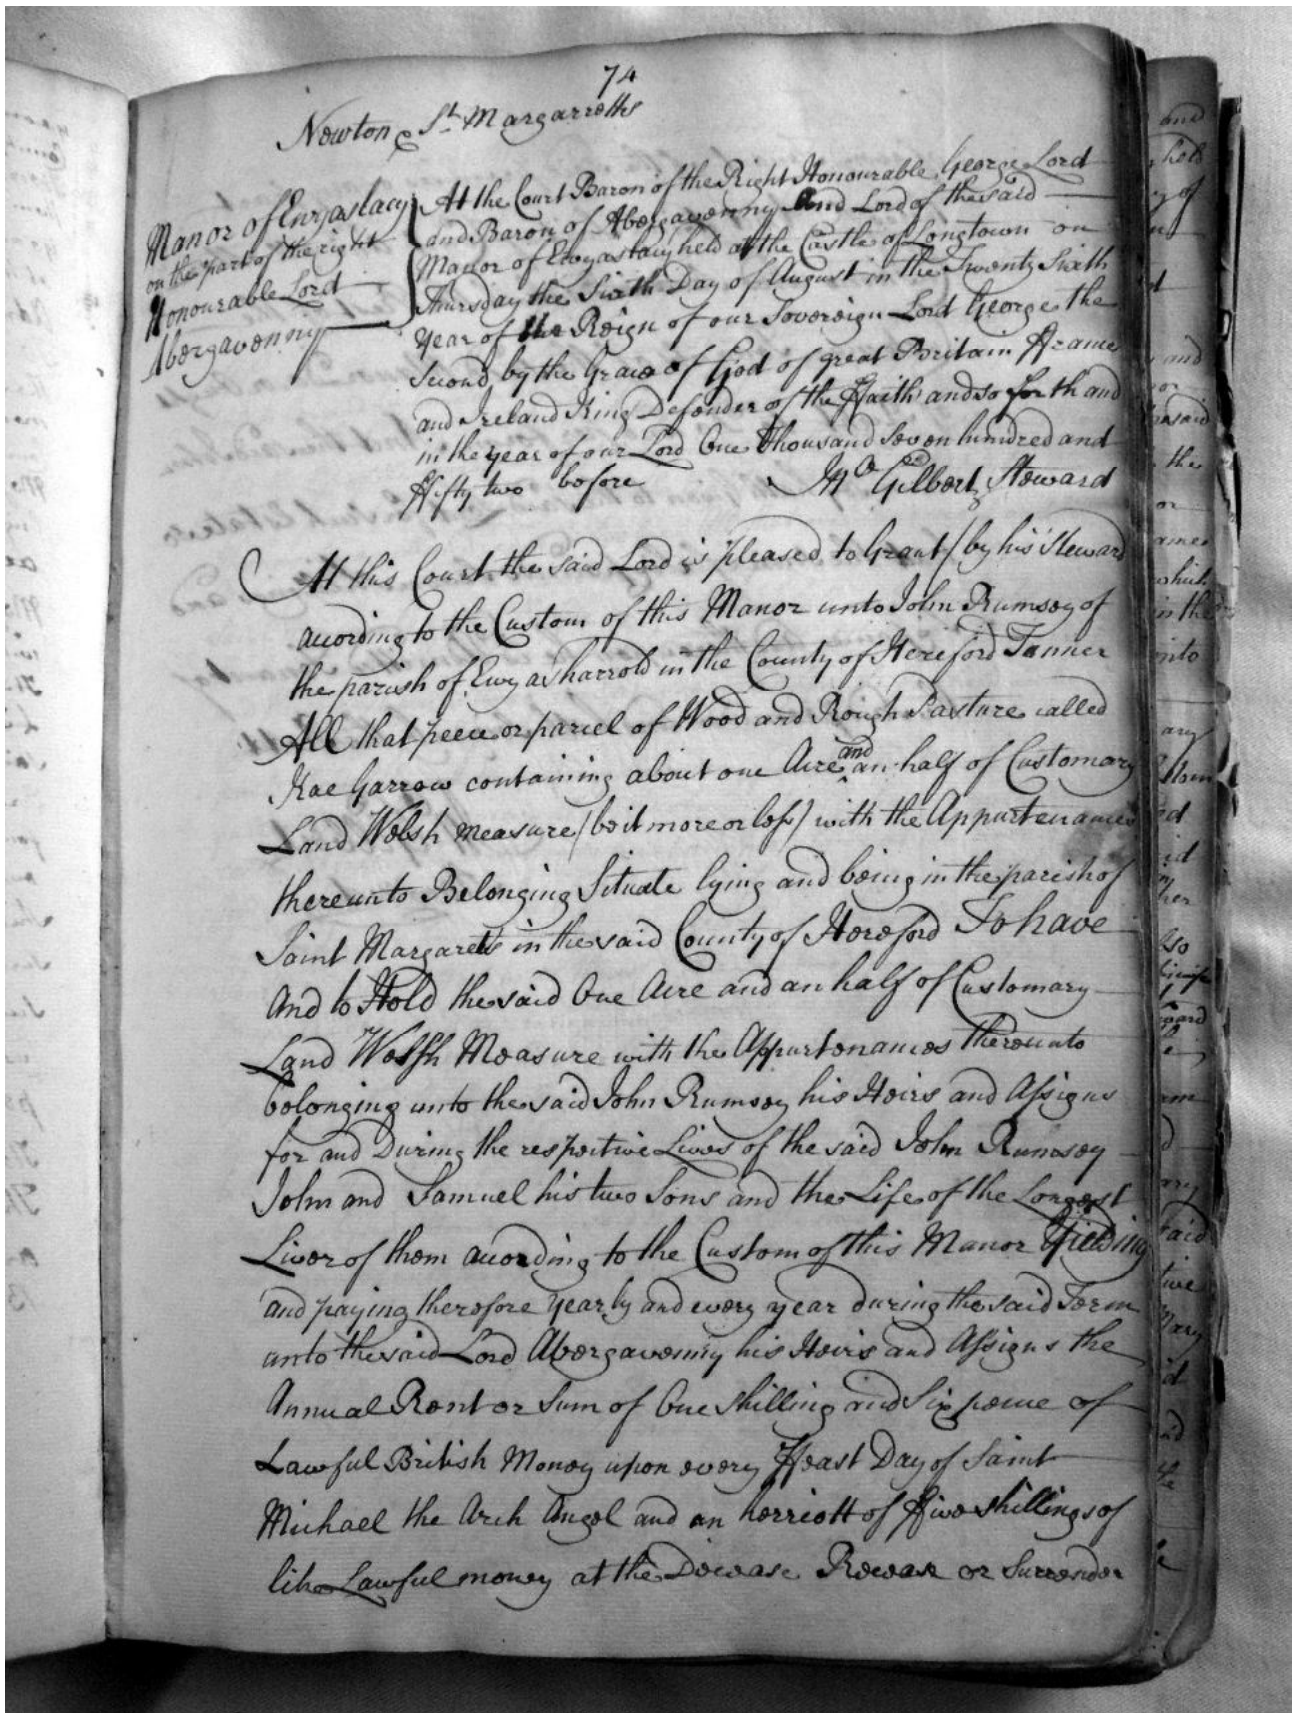 74
Newton & St. Margarretts
Manor of Ewyaslacy
on the part of the right
Honourable Lord
Abergavenny
At the Court Baron of the Right Honourable George Lord
and Baron of Abergavenny And Lord of the said
Manor of Ewyaslacy held at the Castle of Longtown on
Thursday the Sixth Day of August in the Twenty Sixth
Year of the Reign of our Sovereign Lord George the
Second by the Grace of God of great Britain France
and Ireland King Defender of the Faith and so forth and
in the year of our Lord One Thousand Seven hundred and
Fifty two before Gilbert Steward
At this Court the said Lord is pleased to Grant (by his Steward
according to the Custom of this Manor unto John Rumsey of
the parish of Ewyasharrold in the County of Hereford Tanner
All that peece or parcel of Wood and Rough Pasture called
Kae Garrow containing about one Acre and an half of Customary
Land Welsh measure (be it more or less) with the Appurtenances
thereunto Belonging Situate lying and being in the parish of
Saint Margaretts in the said County of Hereford To have
And to Hold the said One Acre and an half of Customary
Land Welsh Measure with the Appurtenances thereunto
belonging unto the said John Rumsey his Heirs and Assigns
for and During the respective Lives of the said John Rumsey
John and Samuel his two Sons and the Life of the Longest
Liver of them according to the Custom of this Manor Yielding
and paying therefore Yearly and every year during the said Term
unto the said Lord Abergavenny his Heirs and Assigns the
Annual Rent or Sum of One Shilling and Six pence of
Lawful British Money upon every Feast Day of Saint
Michael the Arch Angel and an herriott of Five shillings of
like Lawful money at the Decease Release or Surrender